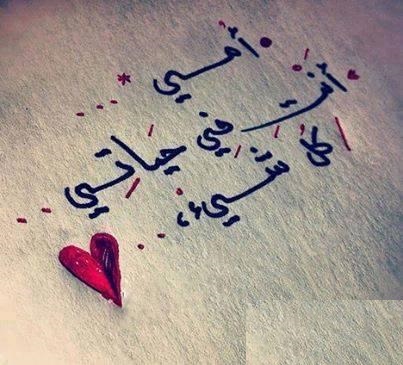 أمي
كل
في حياتي
شيء،